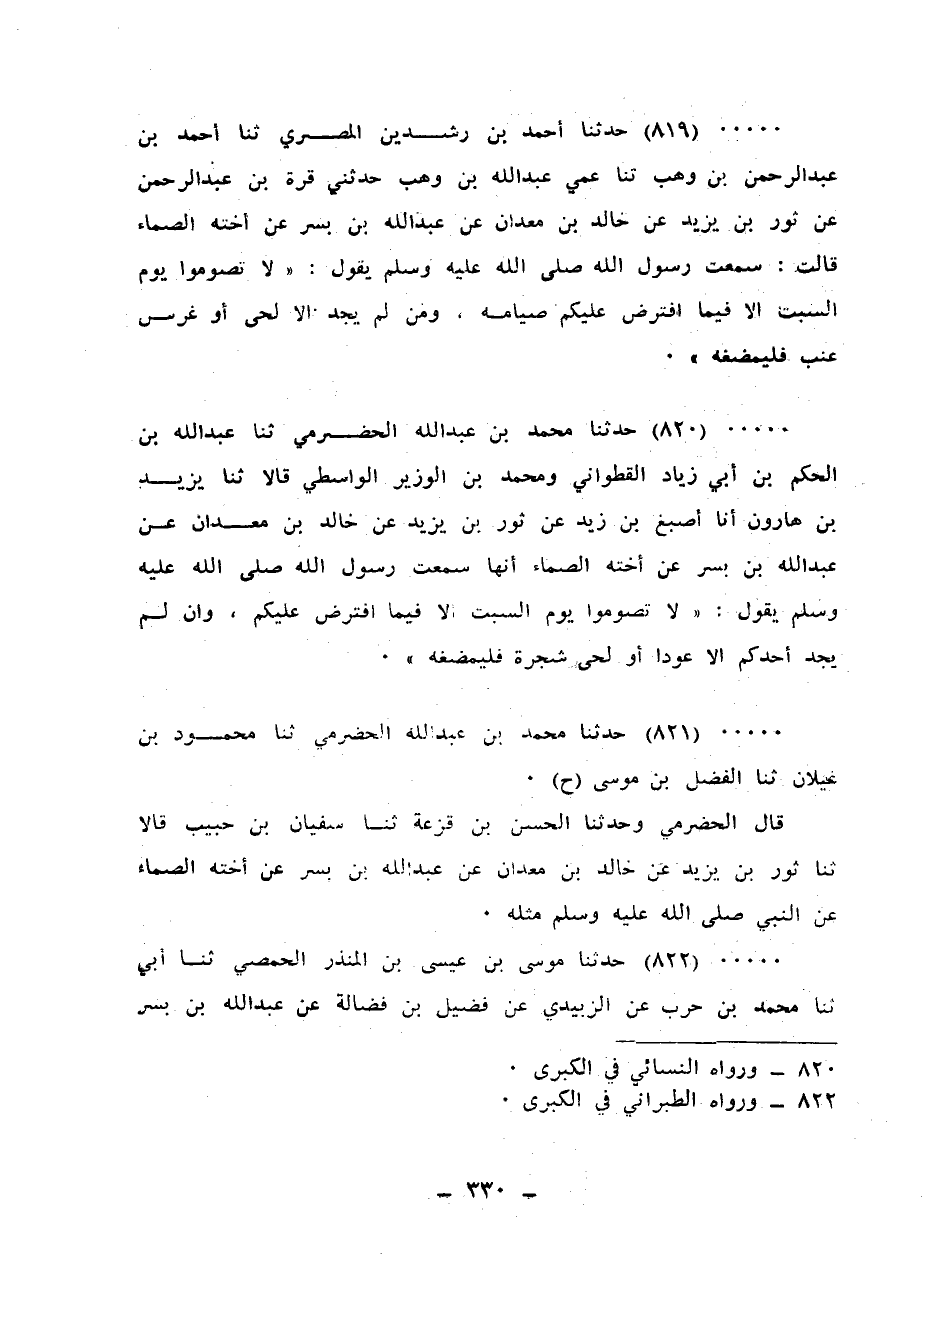 ٠٠٠٠٠ (٨١٩) حدثنا أحمد بن رشدين المصري ثنا أحمد بن
عبدالرحمن بن وهب ثنا عمي عبدالله بن وهب حدثني قرة بن عبدالرحمن
عن ثور بن يزيد عن خالد بن معدان عن عبدالله بن بسر عن أخته الصماء
قالت : سمعت رسول الله صلى الله عليه وسلم يقول : « لا تصوموا يوم
السبت الا فيما افترض عليكم صيامه ، ومن لم يجد الا لحى أو غرس
عنب فليمضغه » ٠
٠٠٠٠٠ (٨٢٠) حدثنا محمد بن عبدالله الحضرمي ثنا عبدالله بن
الحكم بن أبي زياد القطواني ومحمد بن الوزير الواسطي قالا ثنا يزيد
بن هارون أنا أصبغ بن زيد عن ثور بن يزيد عن خالد بن معدان عن
عبدالله بن بسر عن أخته الصماء أنها سمعت رسول الله صلى الله عليه
وسلم يقول : « لا تصوموا يوم السبت الا فيما افترض عليكم ، وان لم
يجد أحدكم الا عودا أو لحى شجرة فليمضغه » ٠
٠٠٠٠٠ (٨٢١) حدثنا محمد بن عبدالله الحضرمي ثنا محمود بن
غيلان ثنا الفضل بن موسى (ح) ٠
قال الحضرمي وحدثنا الحسن بن قزعة ثنا سفيان بن حبيب قالا
ثنا ثور بن يزيد عن خالد بن معدان عن عبدالله بن بسر عن أخته الصماء
عن النبي صلى الله عليه وسلم مثله ٠
٠٠٠٠٠ (٨٢٢) حدثنا موسى بن عيسى بن المنذر الحمصي ثنا أبي
ثنا محمد بن حرب عن الزبيدي عن فضيل بن فضالة عن عبدالله بن بسر
٨٢٠ ــ ورواه النسائي في الكبرى ٠
٨٢٢ ــ ورواه الطبراني في الكبرى ٠
ــ ٣٣٠ ــ